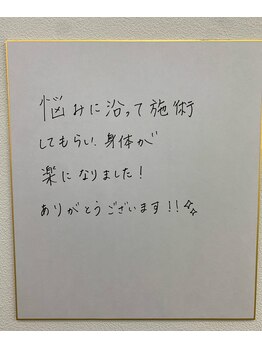 悩みに沿って施術
してもらい、身体が
楽になりました!
ありがとうございます!!